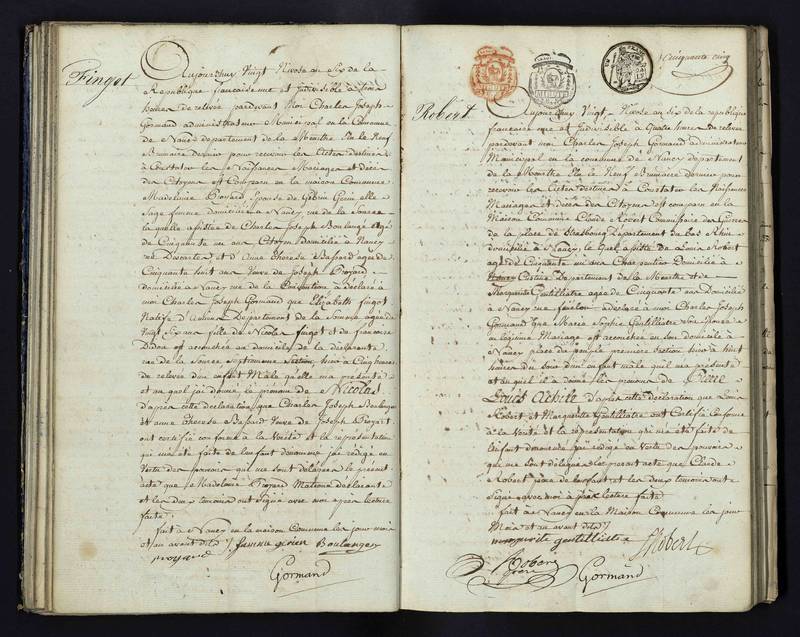 Fingot
Aujourdhuy Vingt Nivose an Six de la
Republique francaise une et Indivisible a trois
heures de relevée pardevant Moi Charles Joseph
Gormand administrateur Municipal en la Commune
de Nancy departement de la Meurthe Elu le Neuf
Brumaire dernier pour recevoir les Actes destines
a Constater les Naissances Mariages et décès
des Citoyens est Comparu en la maison Commune
Madelaine Broyard Epouse de elle
Sage femme domiciliée a Nancy rue de la Source
laquelle assistee de Charles Joseph Boulangé agé
de Cinquante un ans Citoyen Domicilié a Nancy
rue Descartes et d'Anne therese Bassard agée de
Cinquante huit ans Veuve de Joseph Broyard
domiciliée a Nancy rue de la Constitution a déclaré a
moi Charles Joseph Gormand que Elizabeth fingot
Native d'amiens Departement de la Somme agée de
Vingt Six ans fille de Nicolas fingot et de francoise
est accouchée au domicile de la declarante
rue de la Source Septieme Section hier a Cinq heures
de relevée d'un Enfant Male qu'elle ma présenté
et au quel j'ai donné le prénom de Nicolas
d'apres cette declaration que Charles Joseph Boulanger
et anne therese Bassard Veuve de Joseph Broyard
ont certifié conforme a la Vérité et la représentation
qui ma été faite de l'enfant denommé j'ai rédigé en
Vertu des pouvoirs qui me sont délégués le présent
acte que Madelaine Broyard Matrone déclarante
et les deux temoins ont signé avec moi après lecture
faite
fait a Nancy en la maison Commune les jour mois
et an avant dits femme Boulanger
Gormand
Cinquante cinq
Robert
Aujourdhuy Vingt Nivose an Six de la republique
francaise une et Indivisible a Quatre heures de relevee
pardevant moi Charles Joseph Gormand administrateur
Municipal en la commune de Nancy departement
de la Meurthe Elu le Neuf Brumaire dernier pour
recevoir les Actes destines a Constater les Naissances
Mariages et décès des Citoyens est comparu en la
Maison Commune Claude Robert Commissaire des Guerres
de la place de Strasbourg Departement du Bas Rhin
domicilié a Nancy, le quel assisté de Louis Robert
agé de Cinquante un ans Charpentier Domicilié a
Departement de la Meurthe et de
Marguerite Gentilliatre agée de Cinquante ans Domiciliée
a Nancy rue fenelon a déclaré a moi Charles Joseph
Gormand que Marie Sophie Gentilliatre Son Epouse
en légitime Mariage est accouchée en son domicile a
Nancy place du peuple premiere section hier a huit
heures du soir d'un enfant male quil ma présenté
et au quel il a donné les prenoms de Pierre
Louis Achile D'après cette déclaration que Louis
Robert et Marguerite Gentilliatre ont Certifié Conforme
a la Verité et la réprésentation qui ma été faite de
l'enfant denommé j'ai rédigé en Vertu des pouvoirs
qui me sont délégués le present acte que Claude
Robert pere de lenfant et les deux temoins ont
signé avec moi après lecture faite
fait a Nancy en la Maison Commune les jour
Mois et an avant dits
marguerite gentilliatre Robert
Robert
Gormand